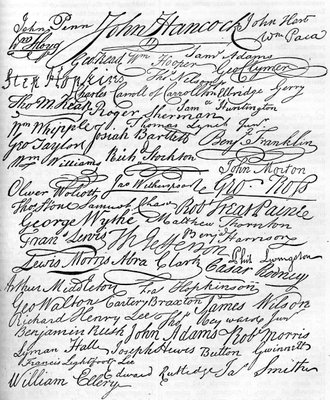 John Penn John Hancock John Hart
Wm Floyd Wm Paca
Gerhard Wm Hooper Saml Adams
Step Hopkins Thos Nelson Geo Clymer
Charles Carroll of Carrollton Elbridge Gerry
Tho M:Kean Roger Sherman Saml Huntington
Wm Whipple Thomas Lynch Junr
Geo Taylor Josiah Bartlett Benj Franklin
Wm Williams Rich Stockton John Morton
Oliver Wolcott Jas Witherspoon Geo Ross
Thos Stone Samuel Chase Rob Treat Paine
George Wythe Matthew Thornton
Frans Lewis Th Jefferson Benj Harrison
Lewis Morris Abra Clark Phil Livingston
Caesar Rodney
Arthur Middleton Fra Hopkinson
Geo Walton Carter Braxton James Wilson
Richard Henry Lee Thos Heyward Junr
Benjamin Rush John Adams Robt Morris
Lyman Hall Joseph Hewes Button Gwinnett
Francis Lightfoot Lee
William Ellery Edward Rutledge Ja Smith